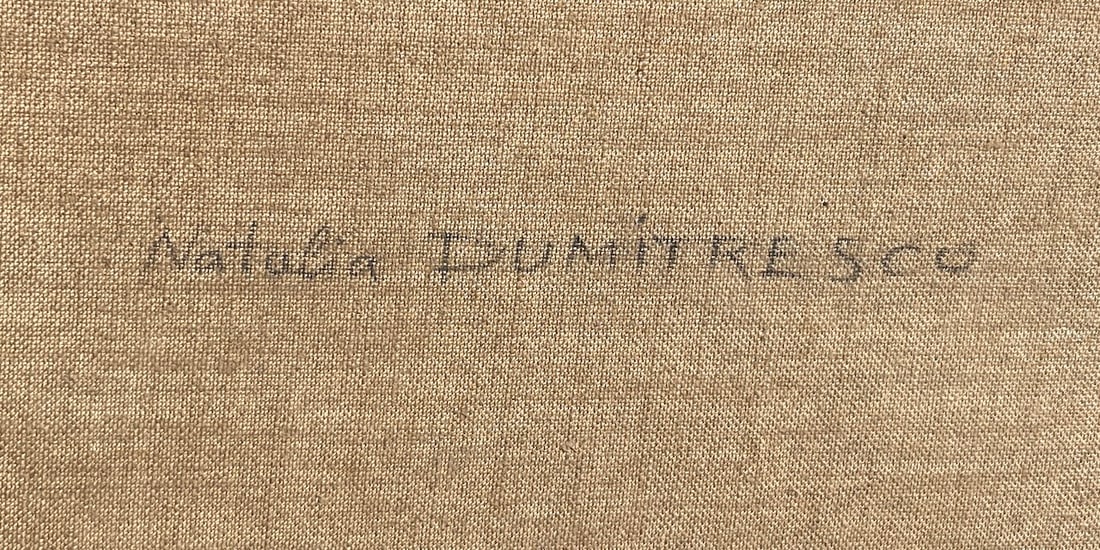 Natalia DUMITRESCO